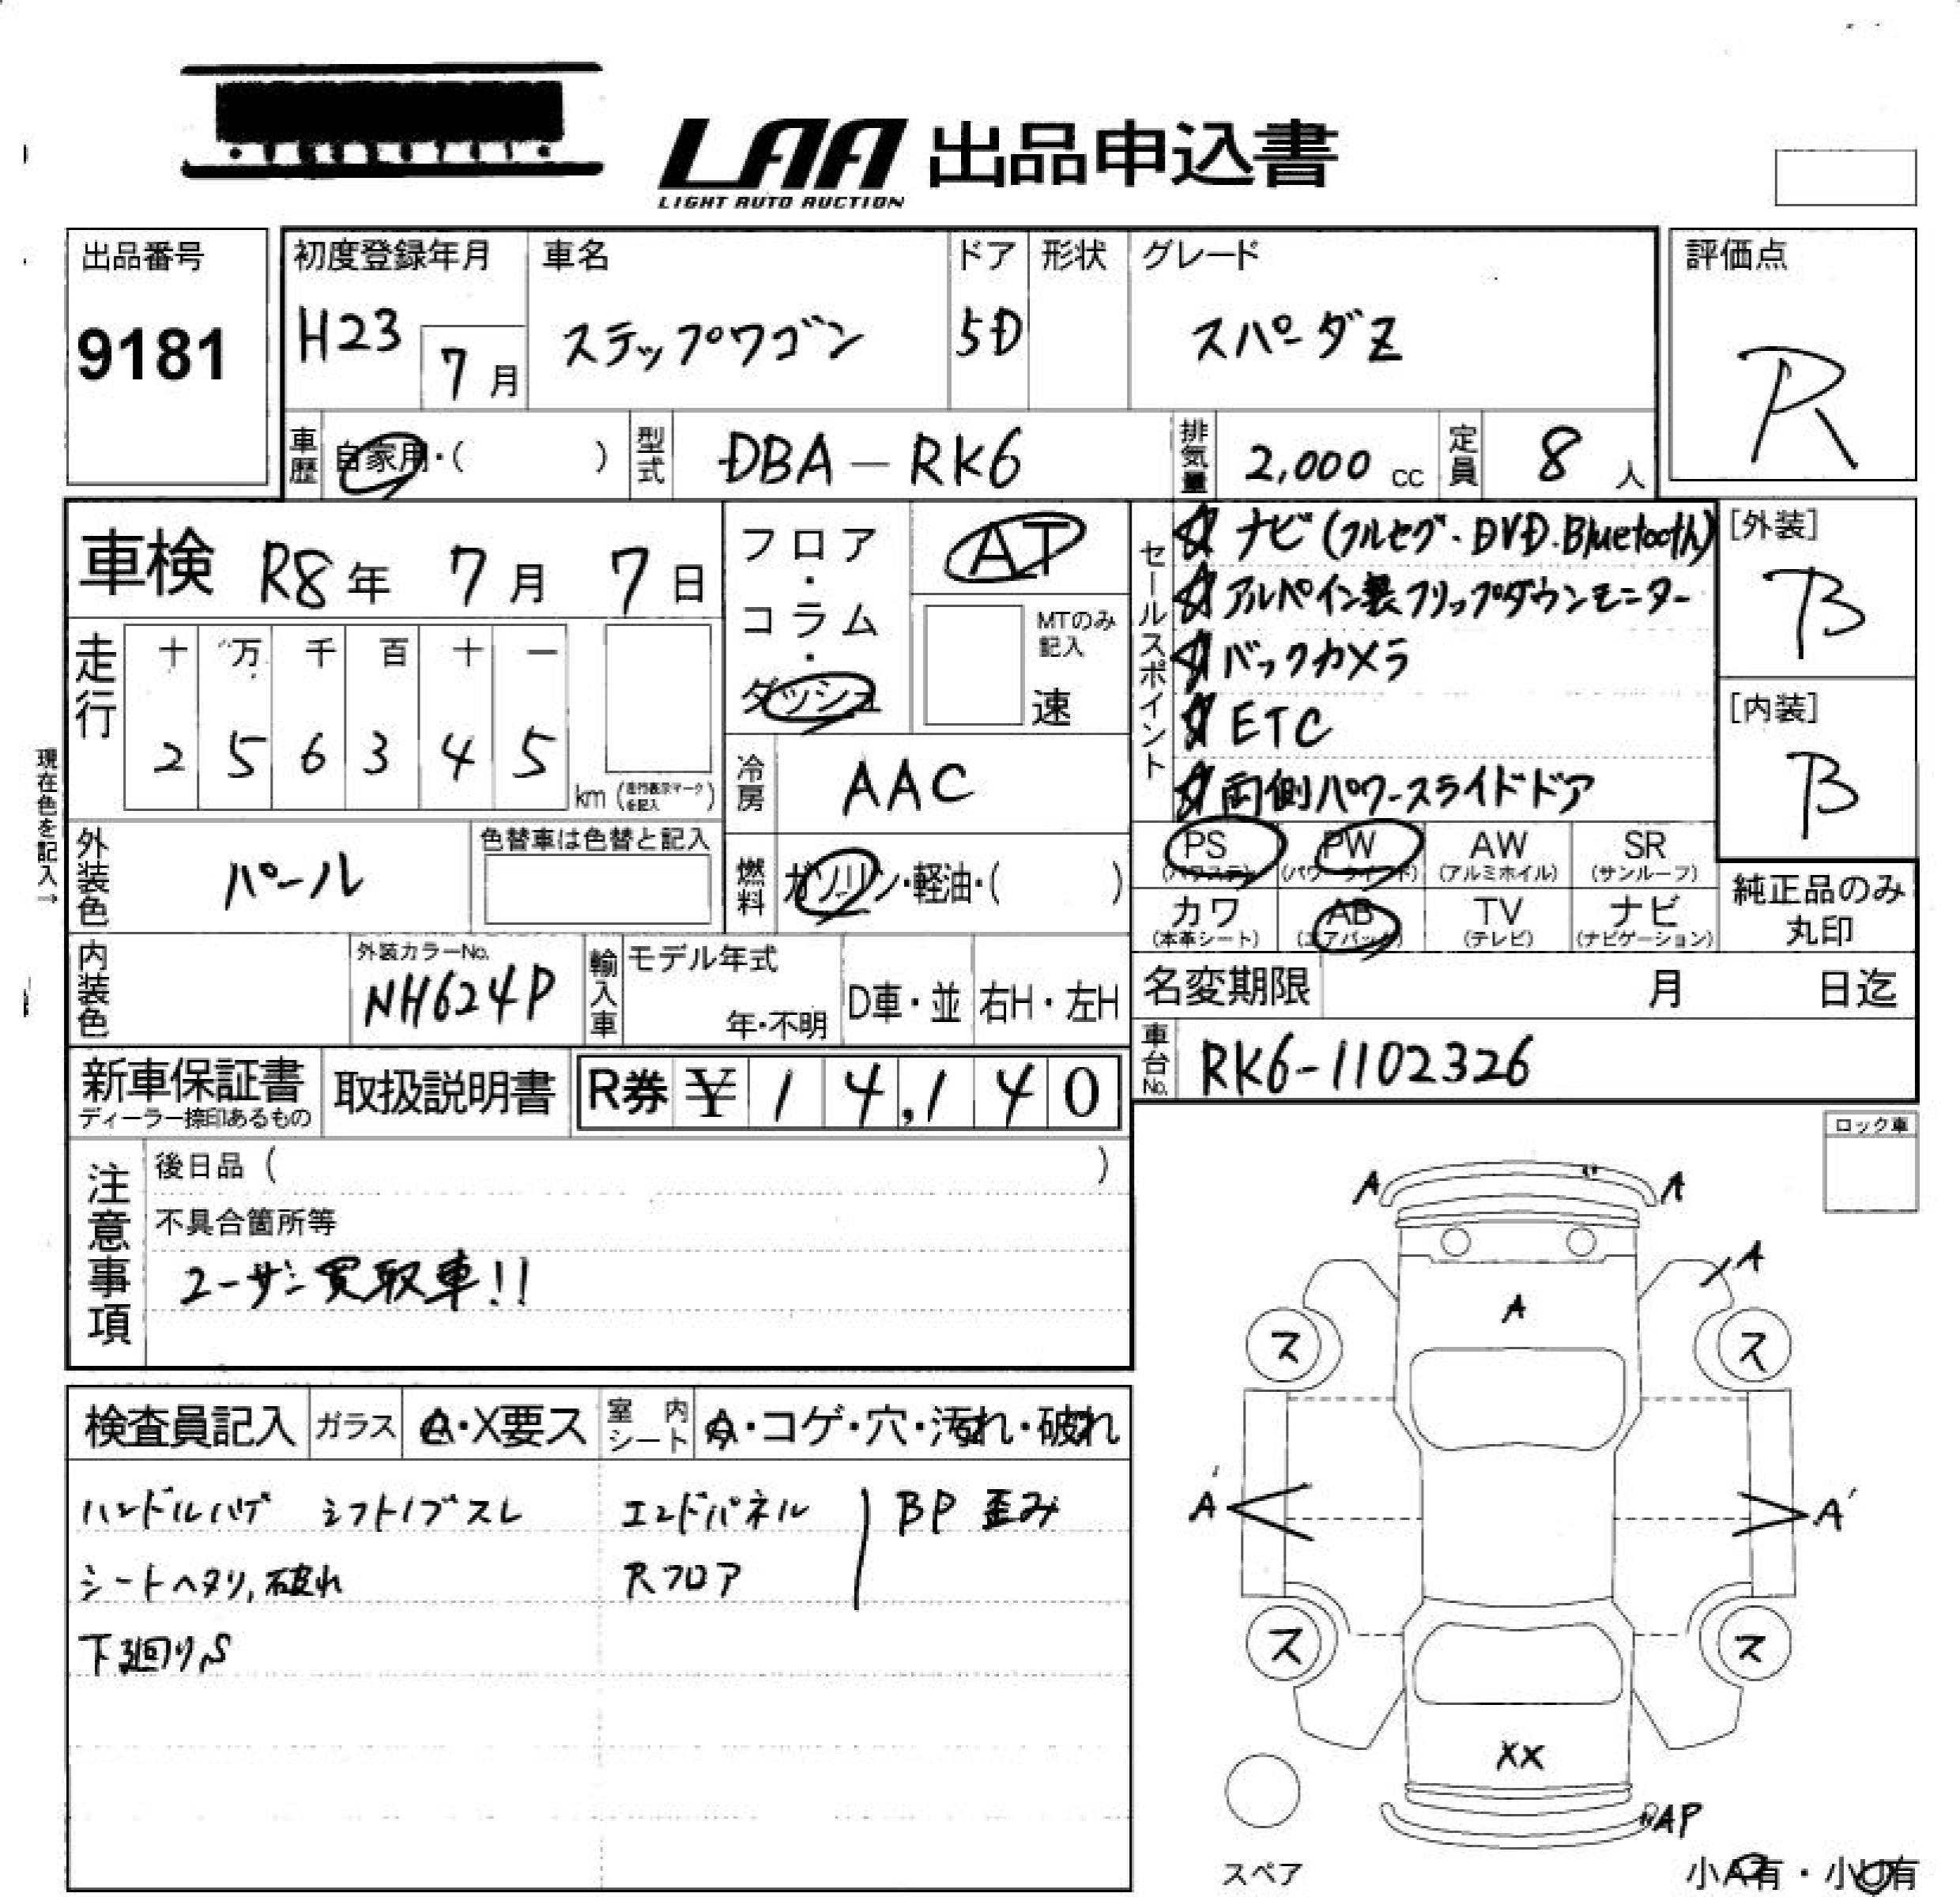 LAA 出品申込書
LIGHT AUTO AUCTION
出品番号
9181
初度登録年月
H23 7月
車名
ステップワゴン
ドア
5D
形状
グレード
スパーダZ
評価点
R
車歴 自家用・( )
型式 DBA-RK6
排気量 2,000 cc
定員 8人
車検 R8年 7月 7日
走行
十 万 千 百 十 一
2 5 6 3 4 5
km (走行表示マークを記入)
現在色を記入→
外装色 パール
色替車は色替と記入
内装色
外装カラーNo.
NH624P
輸入車
モデル年式
年・不明
D車・並
右H・左H
フロア・コラム・ダッシュ
AT
MTのみ記入
速
冷房 AAC
燃料 ガソリン・軽油・( )
セールスポイント
☆ ナビ(フルセグ・DVD.Bluetooth)
☆ アルパイン製フリップダウンモニター
☆ バックカメラ
☆ ETC
☆ 両側パワースライドドア
PS (パワステ)
PW (パワーウインド)
AW (アルミホイル)
SR (サンルーフ)
カワ (本革シート)
AB (エアバック)
TV (テレビ)
ナビ (ナビゲーション)
[外装]
B
[内装]
B
純正品のみ丸印
名変期限 月 日迄
車台No. RK6-1102326
新車保証書
ディーラー捺印あるもの
取扱説明書
R券 ¥14,140
注意事項
後日品 ( )
不具合箇所等
ユーザー買取車!!
ロック車
検査員記入 ガラス A・X要ス 室内シート A・コゲ・穴・汚れ・破れ
ハンドルハゲ シフトノブスレ
シートヘタリ,破れ
下廻りS
エンドパネル
Rフロア
BP 歪み
A
A
A
A
ス
ス
A'
A'
ス
ス
XX
AP
スペア
小A有・小U有